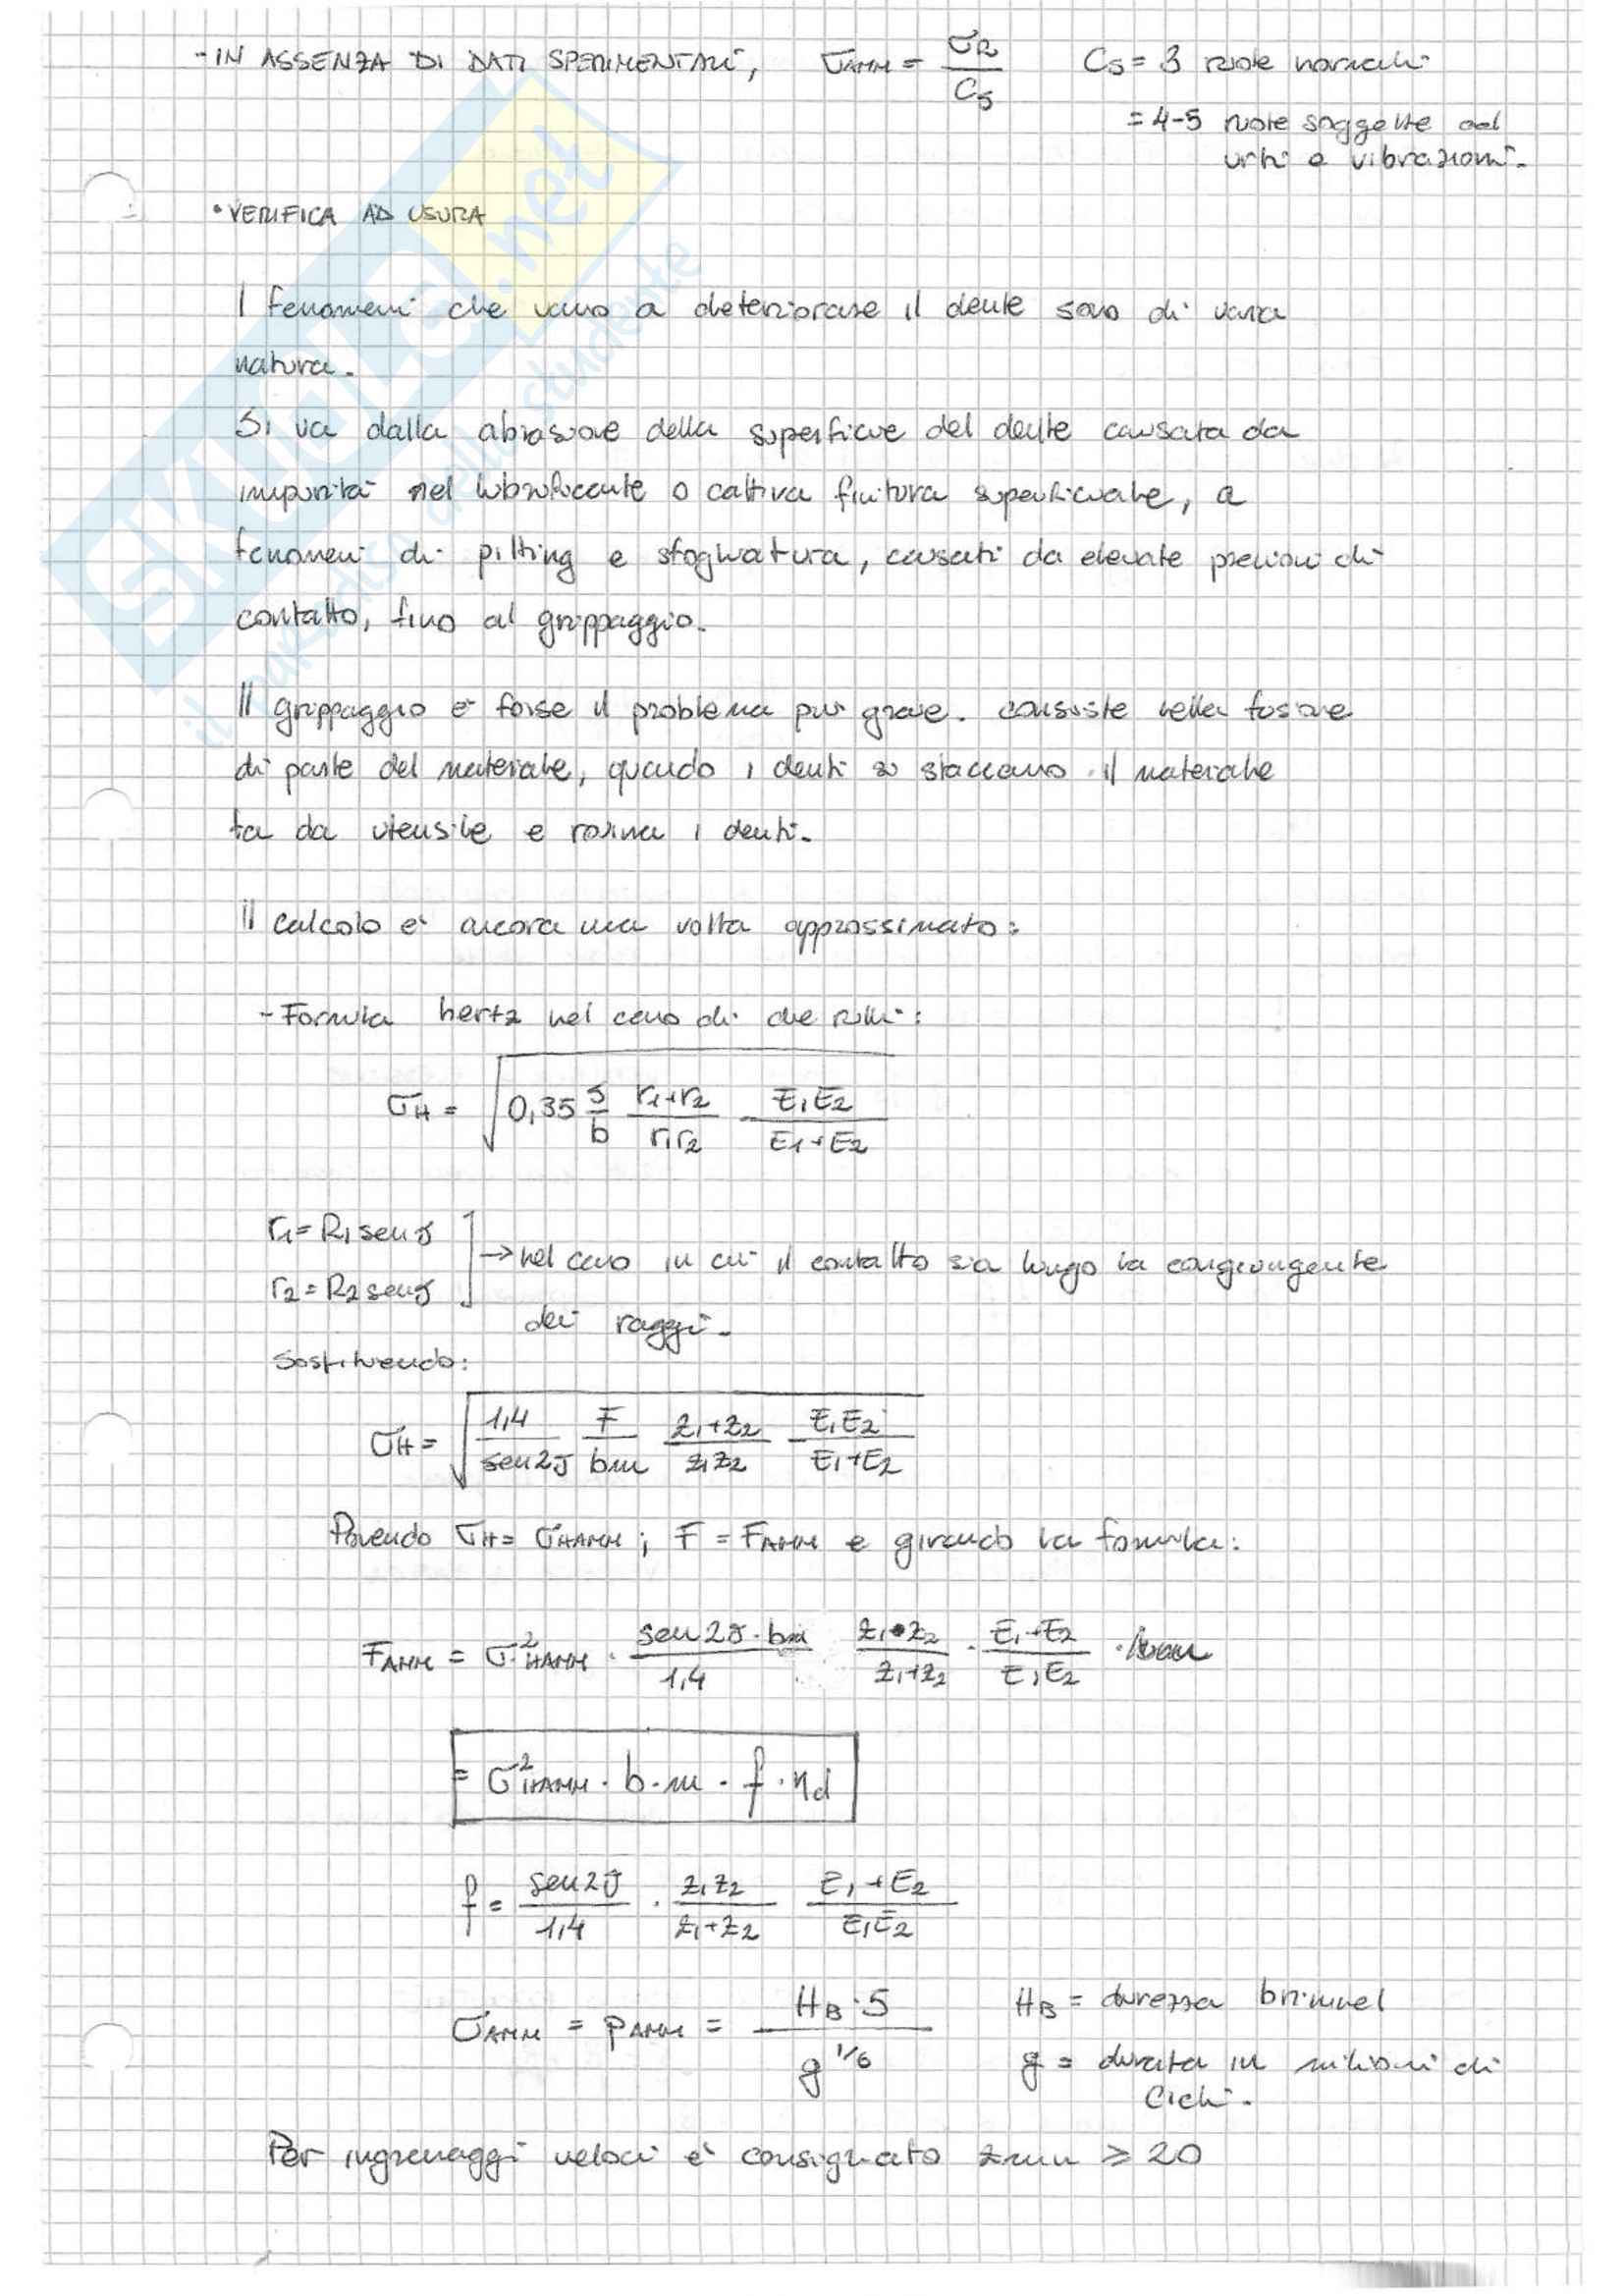 - IN ASSENZA DI DATI SPERIMENTALI, σAMM = σR / CS   CS = 3 ruote normali
= 4-5 ruote soggette ad
urti o vibrazioni.
• VERIFICA AD USURA
I fenomeni che vano a deteriorare il dente sono di varia
natura.
Si va dalla abrasione della superficie del dente causata da
impurità nel lubrificante o cattiva finitura superficiale, a
fenomeni di pitting e sfogliatura, causati da elevate pressioni di
contatto, fino al grippaggio.
Il grippaggio è forse il problema più grave. consiste nella fusione
di parte del materiale, quando i denti si staccano il materiale
fa da utensile e rovina i denti.
Il calcolo è ancora una volta approssimato:
- Formula hertz nel caso di due rulli:
σH = √(0,35 S/b (r1+r2)/(r1r2) (E1E2)/(E1+E2))
r1 = R1 sen ϑ
→ nel caso in cui il contatto sia lungo la congiungente
r2 = R2 sen ϑ
dei raggi.
Sostituendo:
σH = √(1,4/sen2ϑ F/bm (z1+z2)/(z1z2) (E1E2)/(E1+E2))
Ponendo σH = σHAMM ; F = FAMM e girando la formula:
FAMM = σ²HAMM · (sen2ϑ · bm)/1,4 (z1•z2)/(z1+z2) · (E1+E2)/(E1E2) ·
= σ²HAMM · b · m · f · nd
f = sen2ϑ/1,4 · (z1z2)/(z1+z2) (E1+E2)/(E1E2)
σAMM = PAMM = (HB · 5)/g^1/6   HB = durezza brinnel
g = durata in milioni di
Cicli.
Per ingranaggi veloci è consigliato zmin ⩾ 20
SKUOLA.net
il paradiso dello studente